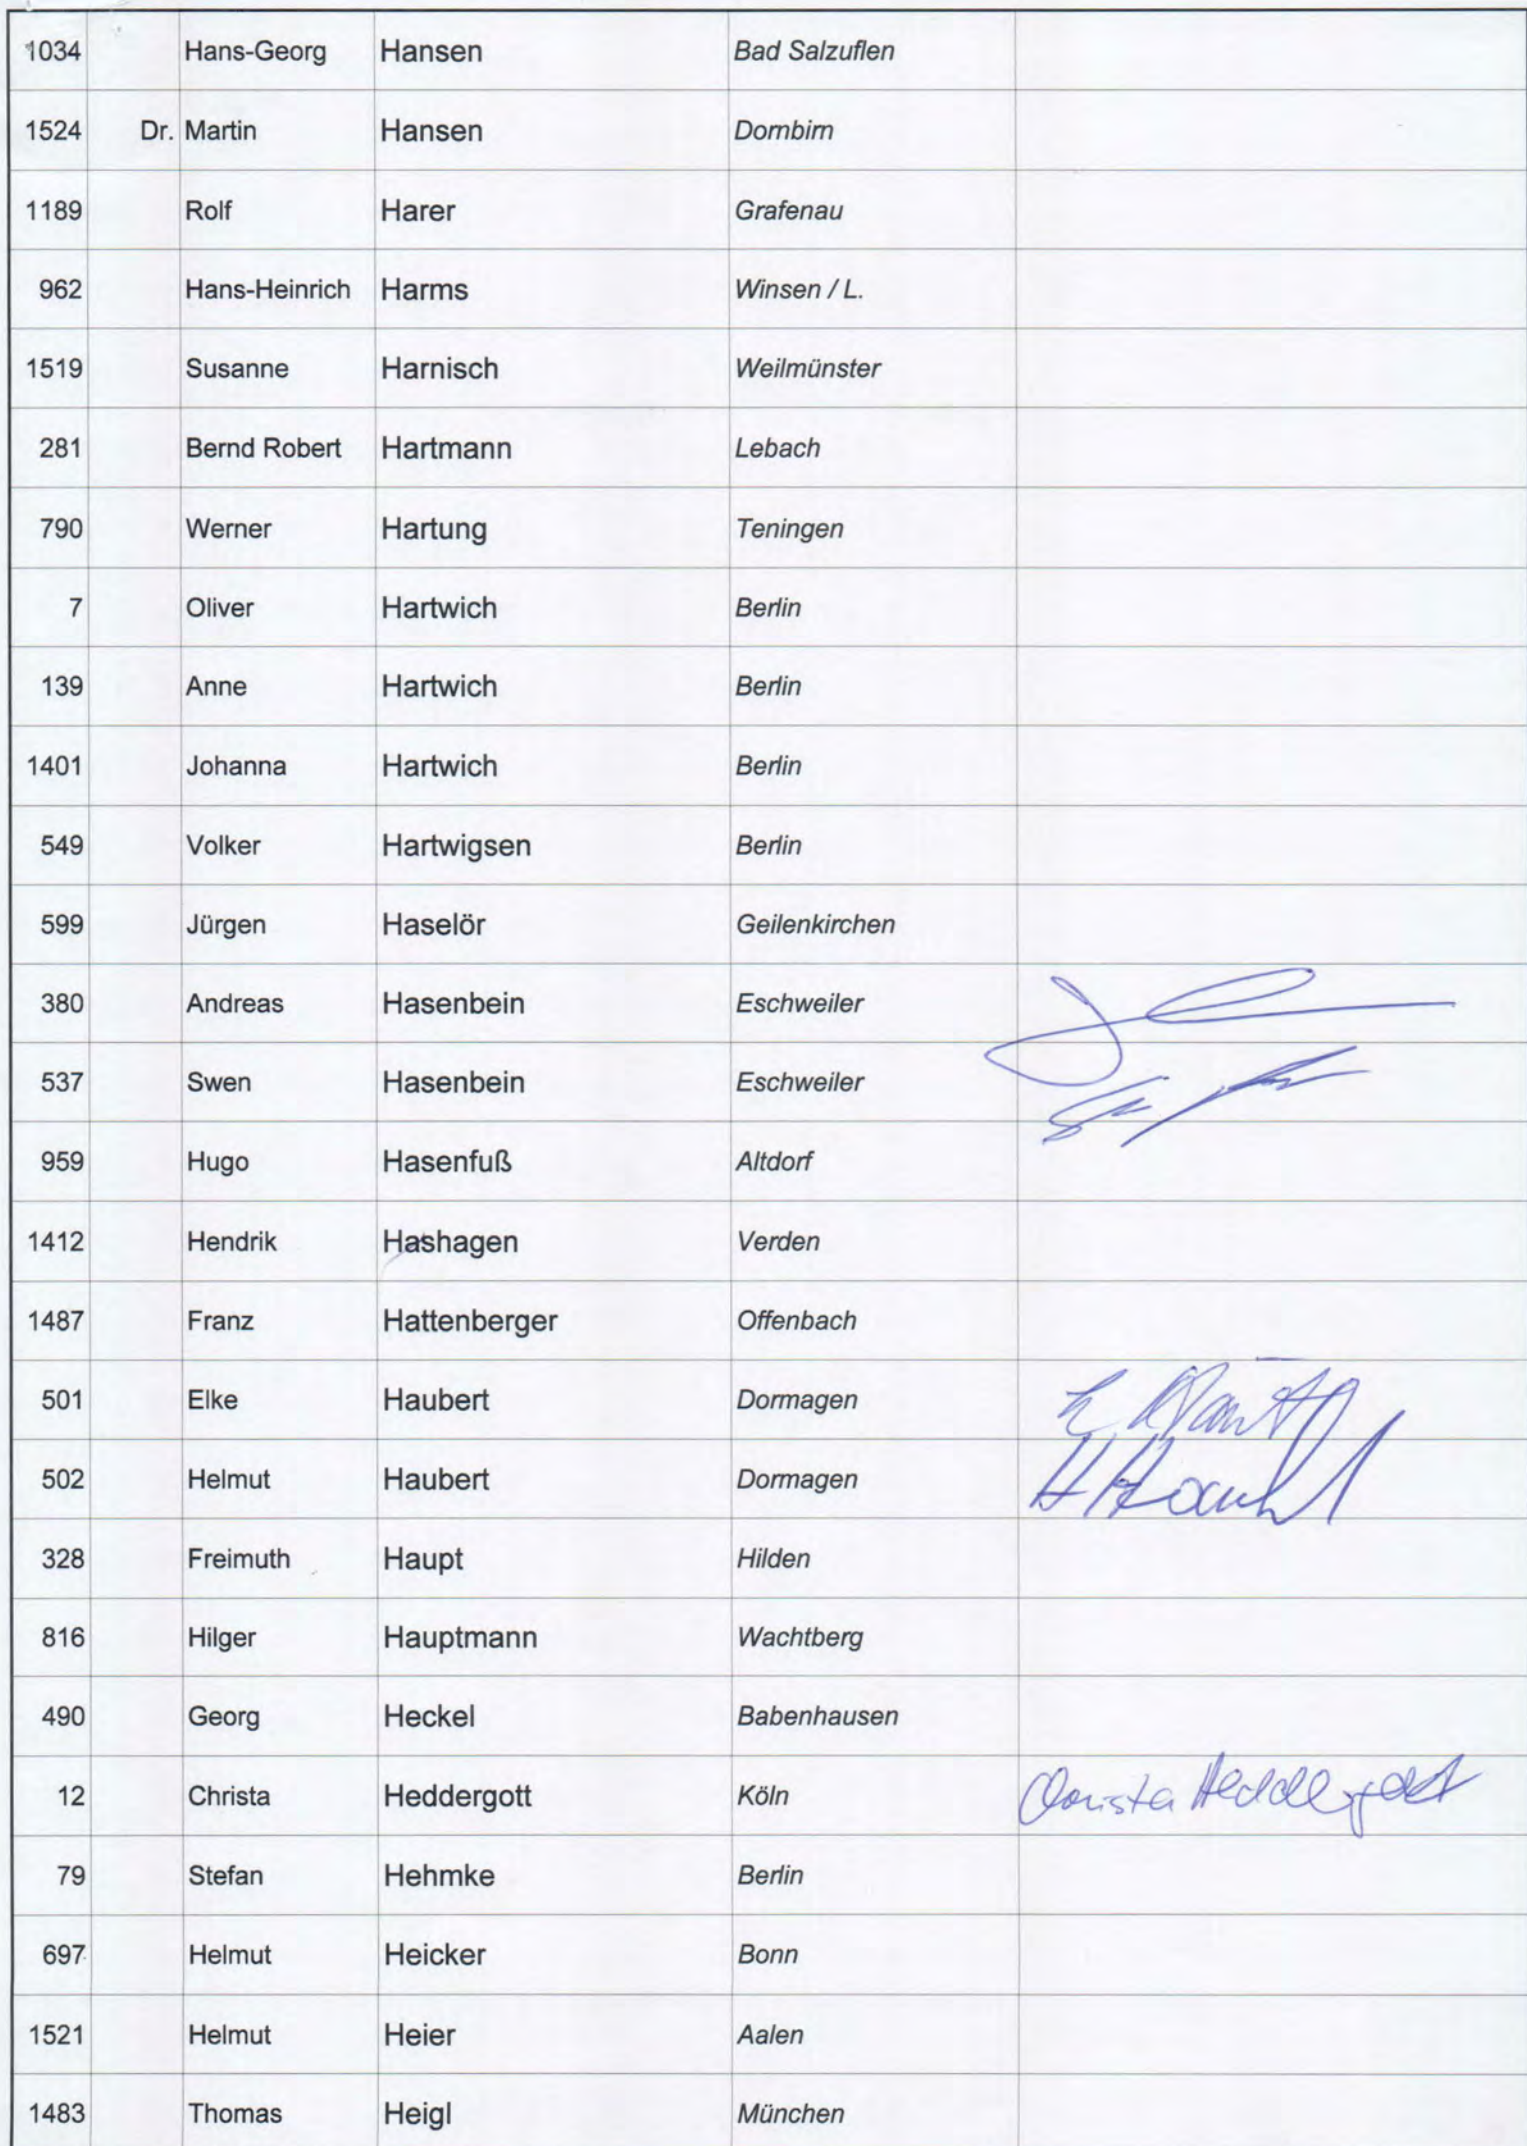 1034 Hans-Georg Hansen Bad Salzuflen
1524 Dr. Martin Hansen Dornbirn
1189 Rolf Harer Grafenau
962 Hans-Heinrich Harms Winsen / L.
1519 Susanne Harnisch Weilmünster
281 Bernd Robert Hartmann Lebach
790 Werner Hartung Teningen
7 Oliver Hartwich Berlin
139 Anne Hartwich Berlin
1401 Johanna Hartwich Berlin
549 Volker Hartwigsen Berlin
599 Jürgen Haselör Geilenkirchen
380 Andreas Hasenbein Eschweiler
537 Swen Hasenbein Eschweiler
959 Hugo Hasenfuß Altdorf
1412 Hendrik Hashagen Verden
1487 Franz Hattenberger Offenbach
501 Elke Haubert Dormagen
502 Helmut Haubert Dormagen
328 Freimuth Haupt Hilden
816 Hilger Hauptmann Wachtberg
490 Georg Heckel Babenhausen
12 Christa Heddergott Köln Christa Heddergott
79 Stefan Hehmke Berlin
697 Helmut Heicker Bonn
1521 Helmut Heier Aalen
1483 Thomas Heigl München